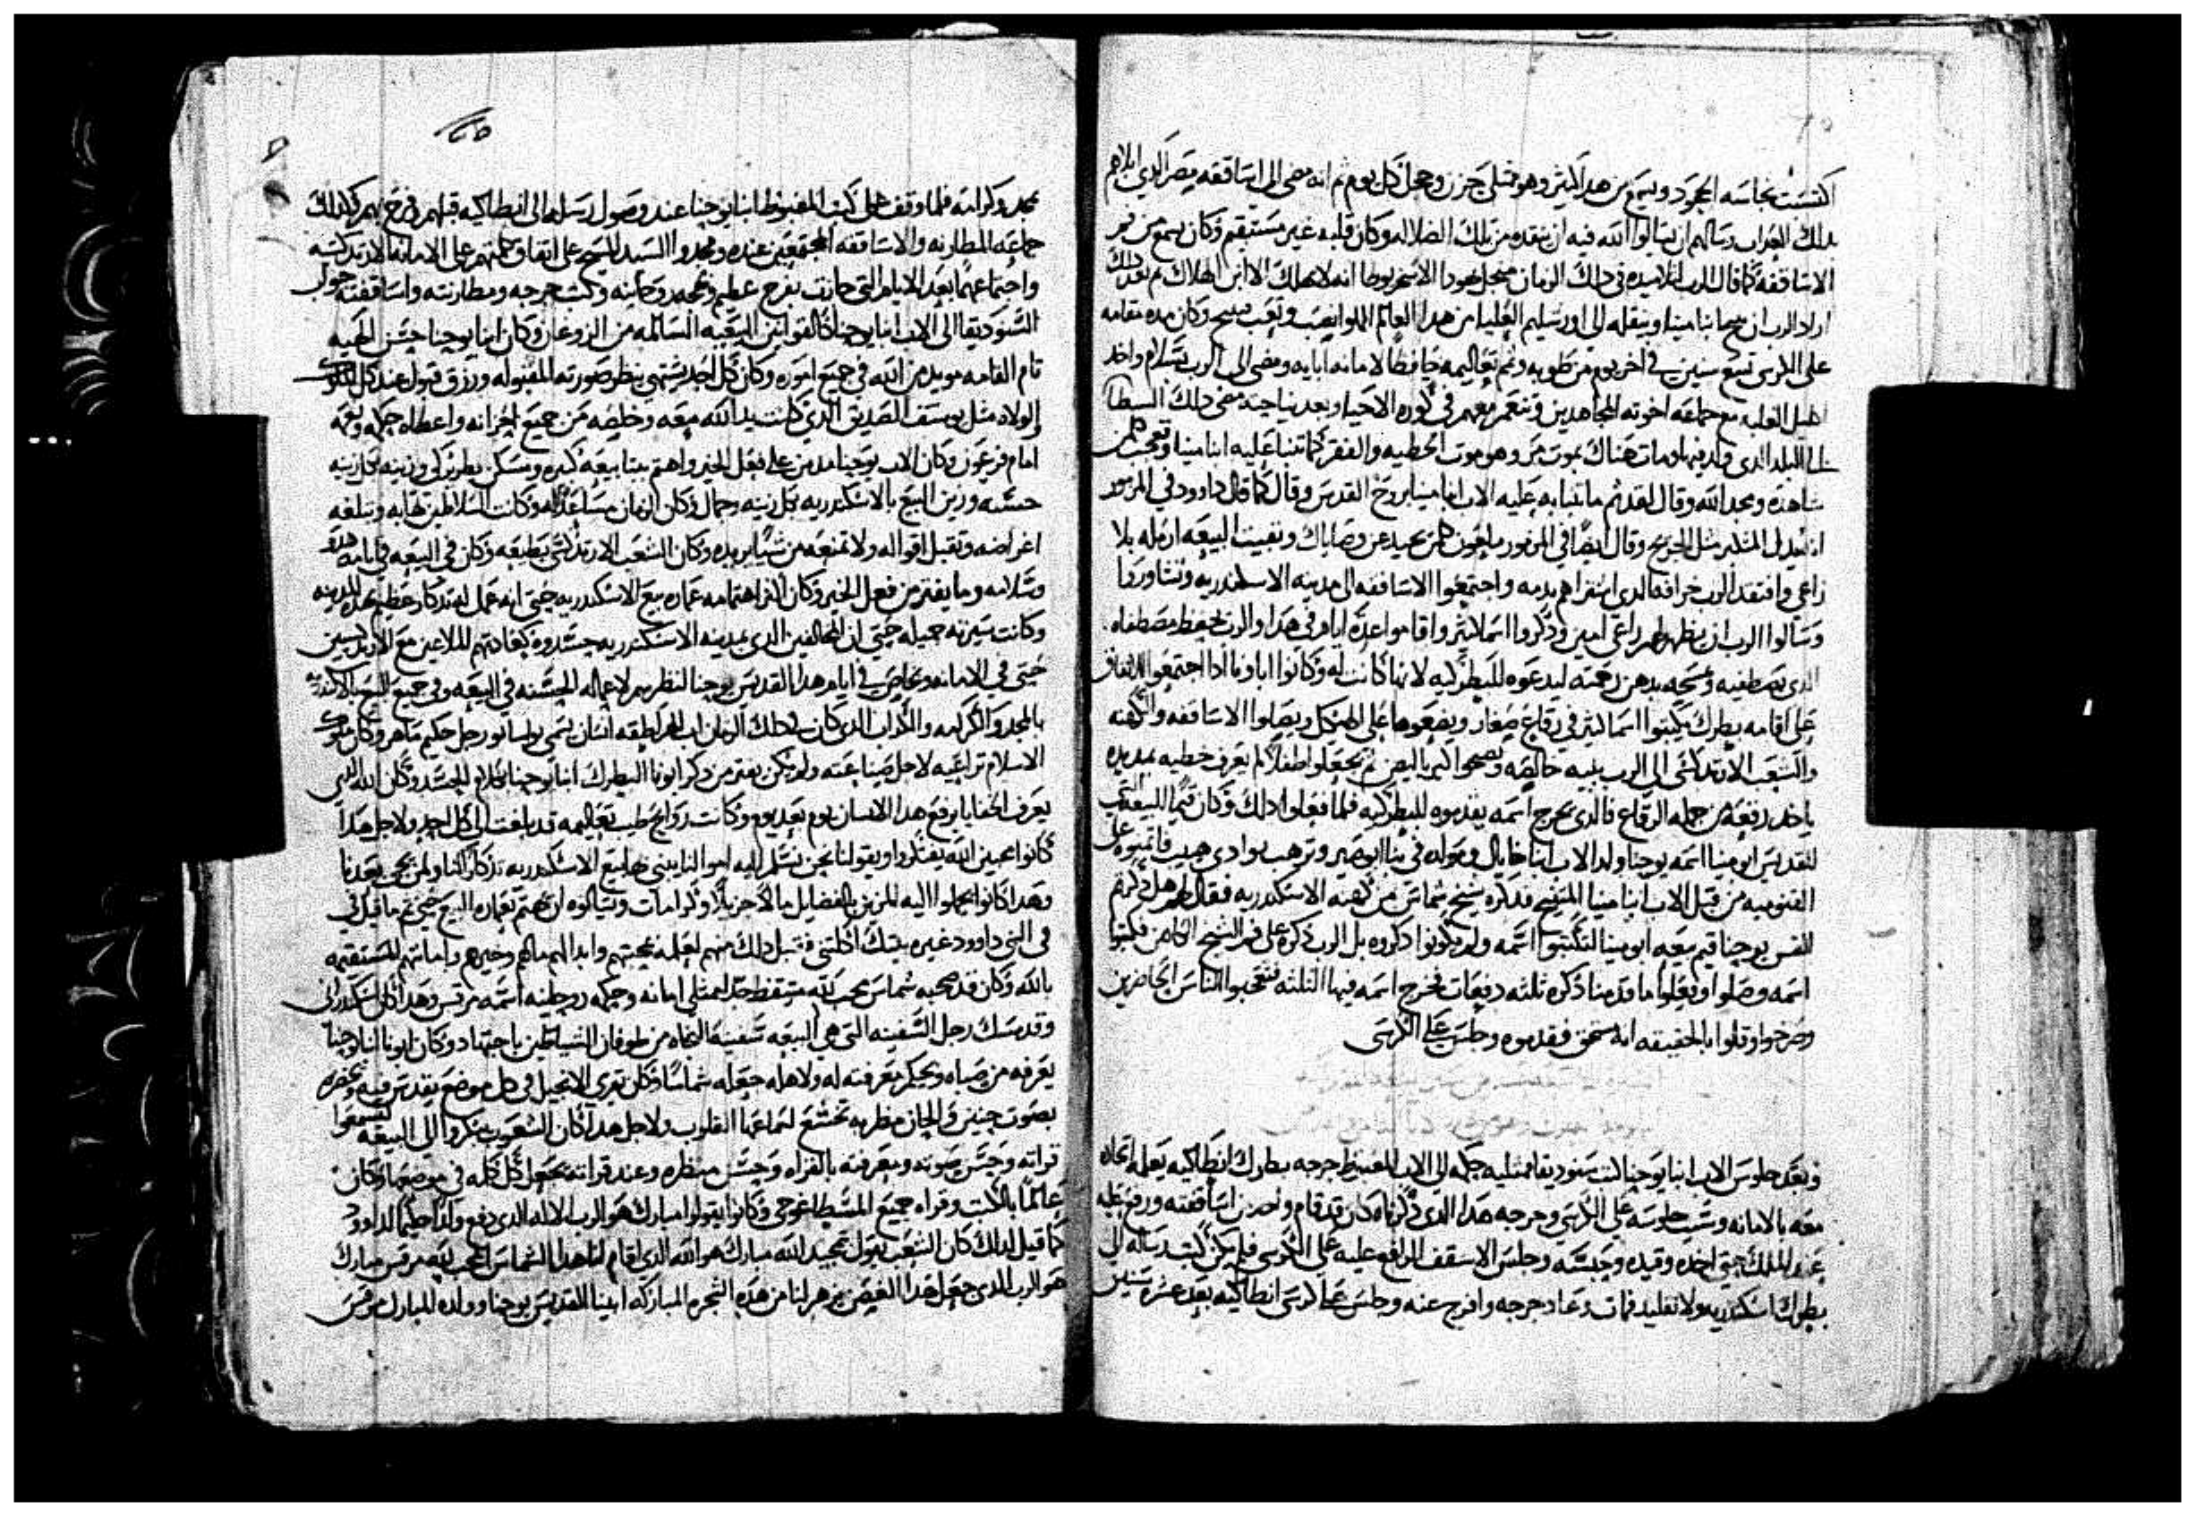 اكتسبت نجاسه الجحود ويسمع من هدا كثير وهو ممتلى حزن وخجل كل يوم ثم انه مضى الى اساقفه مصر الدي ابلاهم
بدلك العداب وسالهم ان يسالوا الله فيه ان ينقده من تلك الضلاله وكان قلبه غير مستقيم وكان يسمع من
الاساقفه كما قال الرب لتلاميده في دلك الزمان من اجل يهودا الاسخريوطا انه لا يهلك الا ابن الهلاك ثم بعد دلك
اراد الرب ان ينيح انبا مينا وينقله الى اورشليم العليا من هدا العالم المملوا تعب وكان مده مقامه
على الكرسي تسع سنين في اخر يوم من طوبه وتم تعاليمه حافظا لامانه ابايه ومضى الى الرب بسلام واخد
اكليل الغلبه مع اخوته المجاهدين وتنعم معهم في كوره الاحيا وبعد نياحته مضى دلك
الى البلد الدى ولد فيها ومات هناك بموت مر وهو موت الخطيه والفقر كما تنبا عليه انبا مينا وتعجب كل من
شاهده ومجد الله وقال لقد تم ما تنبا به عليه الاب انبا مينا بروح القدس وقال كما قال داوود في المزمور
وقال ايضا في المزمور ملعون كل من يحيد عن وصاياك وبقيت البيعه ارمله بلا
راعي وافتقد الرب خرافه الدى اشتراهم بدمه واجتمعوا الاساقفه الى مدينه الاسكندريه وتشاوروا
وسالوا الرب ان يظهر لهم راعي امين ودكروا اسما كثير واقاموا عده ايام في هدا والرب يحفظ مصطفاه
الدي يصطفيه ويمسحه بدهن رحمته ليدعوه للبطركيه لانها كانت له وكانوا اباونا ادا اجتمعوا
على اقامه بطرك يكتبوا اسما كثير في رقاع صغار ويضعوها على الهيكل ويصلوا الاساقفه والكهنه
والشعب الارتدكسى الى الرب بنيه خالصه ويصيحوا كيرياليصن ثم يجعلوا طفلا لم يعرف خطيه يمد يده
ياخد رقعه من جمله الرقاع فالدى يخرج اسمه يقدموه للبطركيه فلما فعلوا دلك وكان قيما لبيعه
القديس ابو مينا اسمه يوحنا ولد الاب انبا خايال ومولده في بنا ابوصير وترهب بوادى هبيب
القنوميه من قبل الاب انبا مينا المتنيح فدكره شيخ شماس من كهنه الاسكندريه فقال لهم هل دكرتم
القس يوحنا قيم بيعه ابو مينا لتكتبوا اسمه ولم يكونوا دكروه بل الرب دكره على فم الشيخ الكاهن فكتبوا
اسمه وصلوا وفعلوا ما قدمنا دكره ثلثه دفعات فخرج اسمه فيها الثلثه فتعجبوا الناس الحاضرين
وصرخوا وقالوا بالحقيقه انه مستحق فقدموه وجلس على الكرسى
وبعد جلوس الاب انبا يوحنا كتب سنوديقا ممتليه حكمه الى الاب المغبوط جرجه بطرك انطاكيه يعلمه اتحاده
معه بالامانه وسبب جلوسه على الكرسى وجرجه هدا الدى دكرناه كان قد قام واحد من اساقفته ورفع عليه
عند الملك حتى اخده وقيده وحبسه وجلس الاسقف الرافع عليه على الكرسى فلم يكن كتب رساله الى
بطرك اسكندريه ولا تقليد فمات وعاد جرجه وافرج عنه وجلس على كرسى انطاكيه بعد عشره سنين
بمجد وكرامه فلما وقف على كتب المغبوط انبا يوحنا عند وصول رسله الى انطاكيه قبلهم بفرح وكدلك
جماعه المطارنه والاساقفه المجتمعين عنده ومجدوا السيد المسيح على اتفاق كلمتهم على الامانه الارتدكسيه
واجتماعهما بعد الايام التي جازت بفرح عظيم وتمجيد وكتب جرجه ومطارنته واساقفته جواب
السنوديقا الى الاب انبا يوحنا كالقوانين البيعيه السالمه من الزوغان وكان انبا يوحنا حسن اللحيه
تام القامه مويد من الله في جميع اموره وكان كل احد يشتهي ينظر صورته المقبوله ورزق قبول عند كل الملوك
والولاه مثل يوسف الصديق الدي كانت يد الله معه وخلصه من جميع احزانه واعطاه حكمه ونعمه
امام فرعون وكان الاب يوحنا مدمن على فعل الخير واهتم ببنا بيعه كبيره ومسكن بطريركي وزينه بكل زينه
حسنه وزين البيع بالاسكندريه بكل زينه وجمال وكان الزمان مساعد له وكانت السلاطين تهابه وتبلغه
اغراضه وتقبل اقواله ولا تمنعه من شيا يريده وكان الشعب الارتدكسى يطيعه وكان في البيعه في ايامه هدو
وسلامه وما يفتر من فعل الخير وكان اكثر اهتمامه عماره بيع الاسكندريه حتى انه عمل له تدكار عظيم بهده المدينه
وكانت سيرته جميله حتى ان المخالفين الدى بمدينه الاسكندريه حسدوه كعادتهم الملاعين مع الارتدكسيين
حتى في الامانه في ايام هدا القديس يوحنا لنظرهم لاعماله الحسنه في البيعه وفي جميع البيع بالاسكندريه
بالمجد والكرامه والكداب الدى كان في دلك الزمان اب انسان يسمى بوليانو رجل حكيم ماهر وكان ملوك
الاسلام تراعيه لاجل صناعته ولم يكن يفتر من دكر ابونا البطرك انبا يوحنا بكلام الحسد وكان الله الدي
يعرف الخفايا يرفع هدا الانسان يوم بعد يوم وكانت روايح طيب تعاليمه قد بلغت الى كل احد ولاجل هدا
كانوا محبين الله يقولوا نحن نسلم اليه اموالنا يبنى بها بيع الاسكندريه تدكارا لنا ولمن يجي بعدنا
وهدا كانوا يحملوا اليه المزين بالفضايل مالا جزيلا وكرامات وسالوه ان يهتم بعماره البيع حتى تم ما قيل في
في النبي داوود غيره بيتك اكلتني فقبل دلك منهم لعلمه بمحبتهم وامانتهم المستقيمه
بالله وكان قد صحبه شماس محب لله مستيقظ جدا ممتلي امانه وحكمه روحانيه اسمه مرقس وهدا كان اسكندراني
وقديسك رجل السفينه التى هي البيعه سفينه النجاه من طوفان الشياطين باجتهاد وكان ابونا انبا يوحنا
يعرفه من صباه وبحكم معرفته له ولاهله جعله شماسا وكان يقرى الانجيل في كل موضع يقدس فيه
بصوت حنين والحان مطربه تخشع لسماعها القلوب ولاجل هدا كان الشعوب يبكروا الى البيعه ليسمعوا
قراته وحسن صوته ومعرفته بالقراه وحسن منظره وعند قراته يجعل كل كلمه في موضعها وكان
عالما بالكتب وقراه جميع المسطاغوجي وكانوا يقولوا مبارك هو الرب الاله الدى دفع ولدا حكيما لداوود
كما قيل لدلك كان الشعب يقول بتمجيد الله مبارك هو الله الدى اقام لنا هدا الشماس المحب لله مرقس مبارك
هو الرب الدى جعل هدا الغصن يزهر لنا من هده الشجره المباركه ابينا القديس يوحنا وولده المبارك مرقس